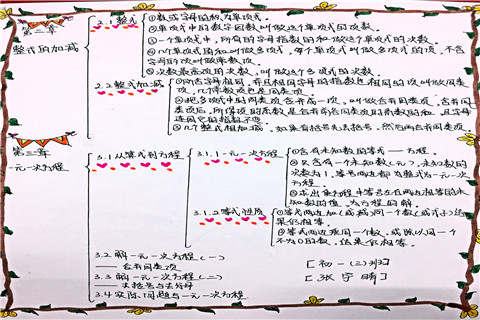 第二章
整式的加减
2.1 整式
①数或字母的积为单项式。
②单项式中的数字因数叫做这个单项式的系数。
③一个单项式中,所有的字母指数的和叫做这个单项式的次数。
④几个单项式的和叫做多项式,每个单项式叫做多项式的项,不含
字母的项叫做常数项。
⑤次数最高项的次数,叫做这个多项式的次数。
2.2 整式加减
①所含字母相同,并且相同字母的指数也相同的项叫做同类
项,几个常数项也是同类项。
②把多项式中的同类项合并成一项,叫做合并同类项,合并同
类项后,所得项的系数是合并前各同类项的系数的和,且字母
连同它的指数不变
③几个整式相加减,如果有括号先去括号,然后再合并同类项。
第三章
一元一次方程
3.1 从算式到方程
3.1.1 一元一次方程
①含有未知数的等式——方程。
②只含有一个未知数(元),未知数的
次数为1,等号两边都为整式为一元一次方
程。
③求出使方程中等号左右两边相等的未
知数的值,为方程的解。
3.1.2 等式性质
①等式两边加(或减)同一个数(或式子)结
果仍相等。
②等式两边乘同一个数,或除以同一个
不为0的数,结果仍相等。
3.2 解一元一次方程(一)
——合并同类项
3.3 解一元一次方程(二)
——去括号与去分母
3.4 实际问题与一元一次方程
[初一(三)班]
[张宇晴]